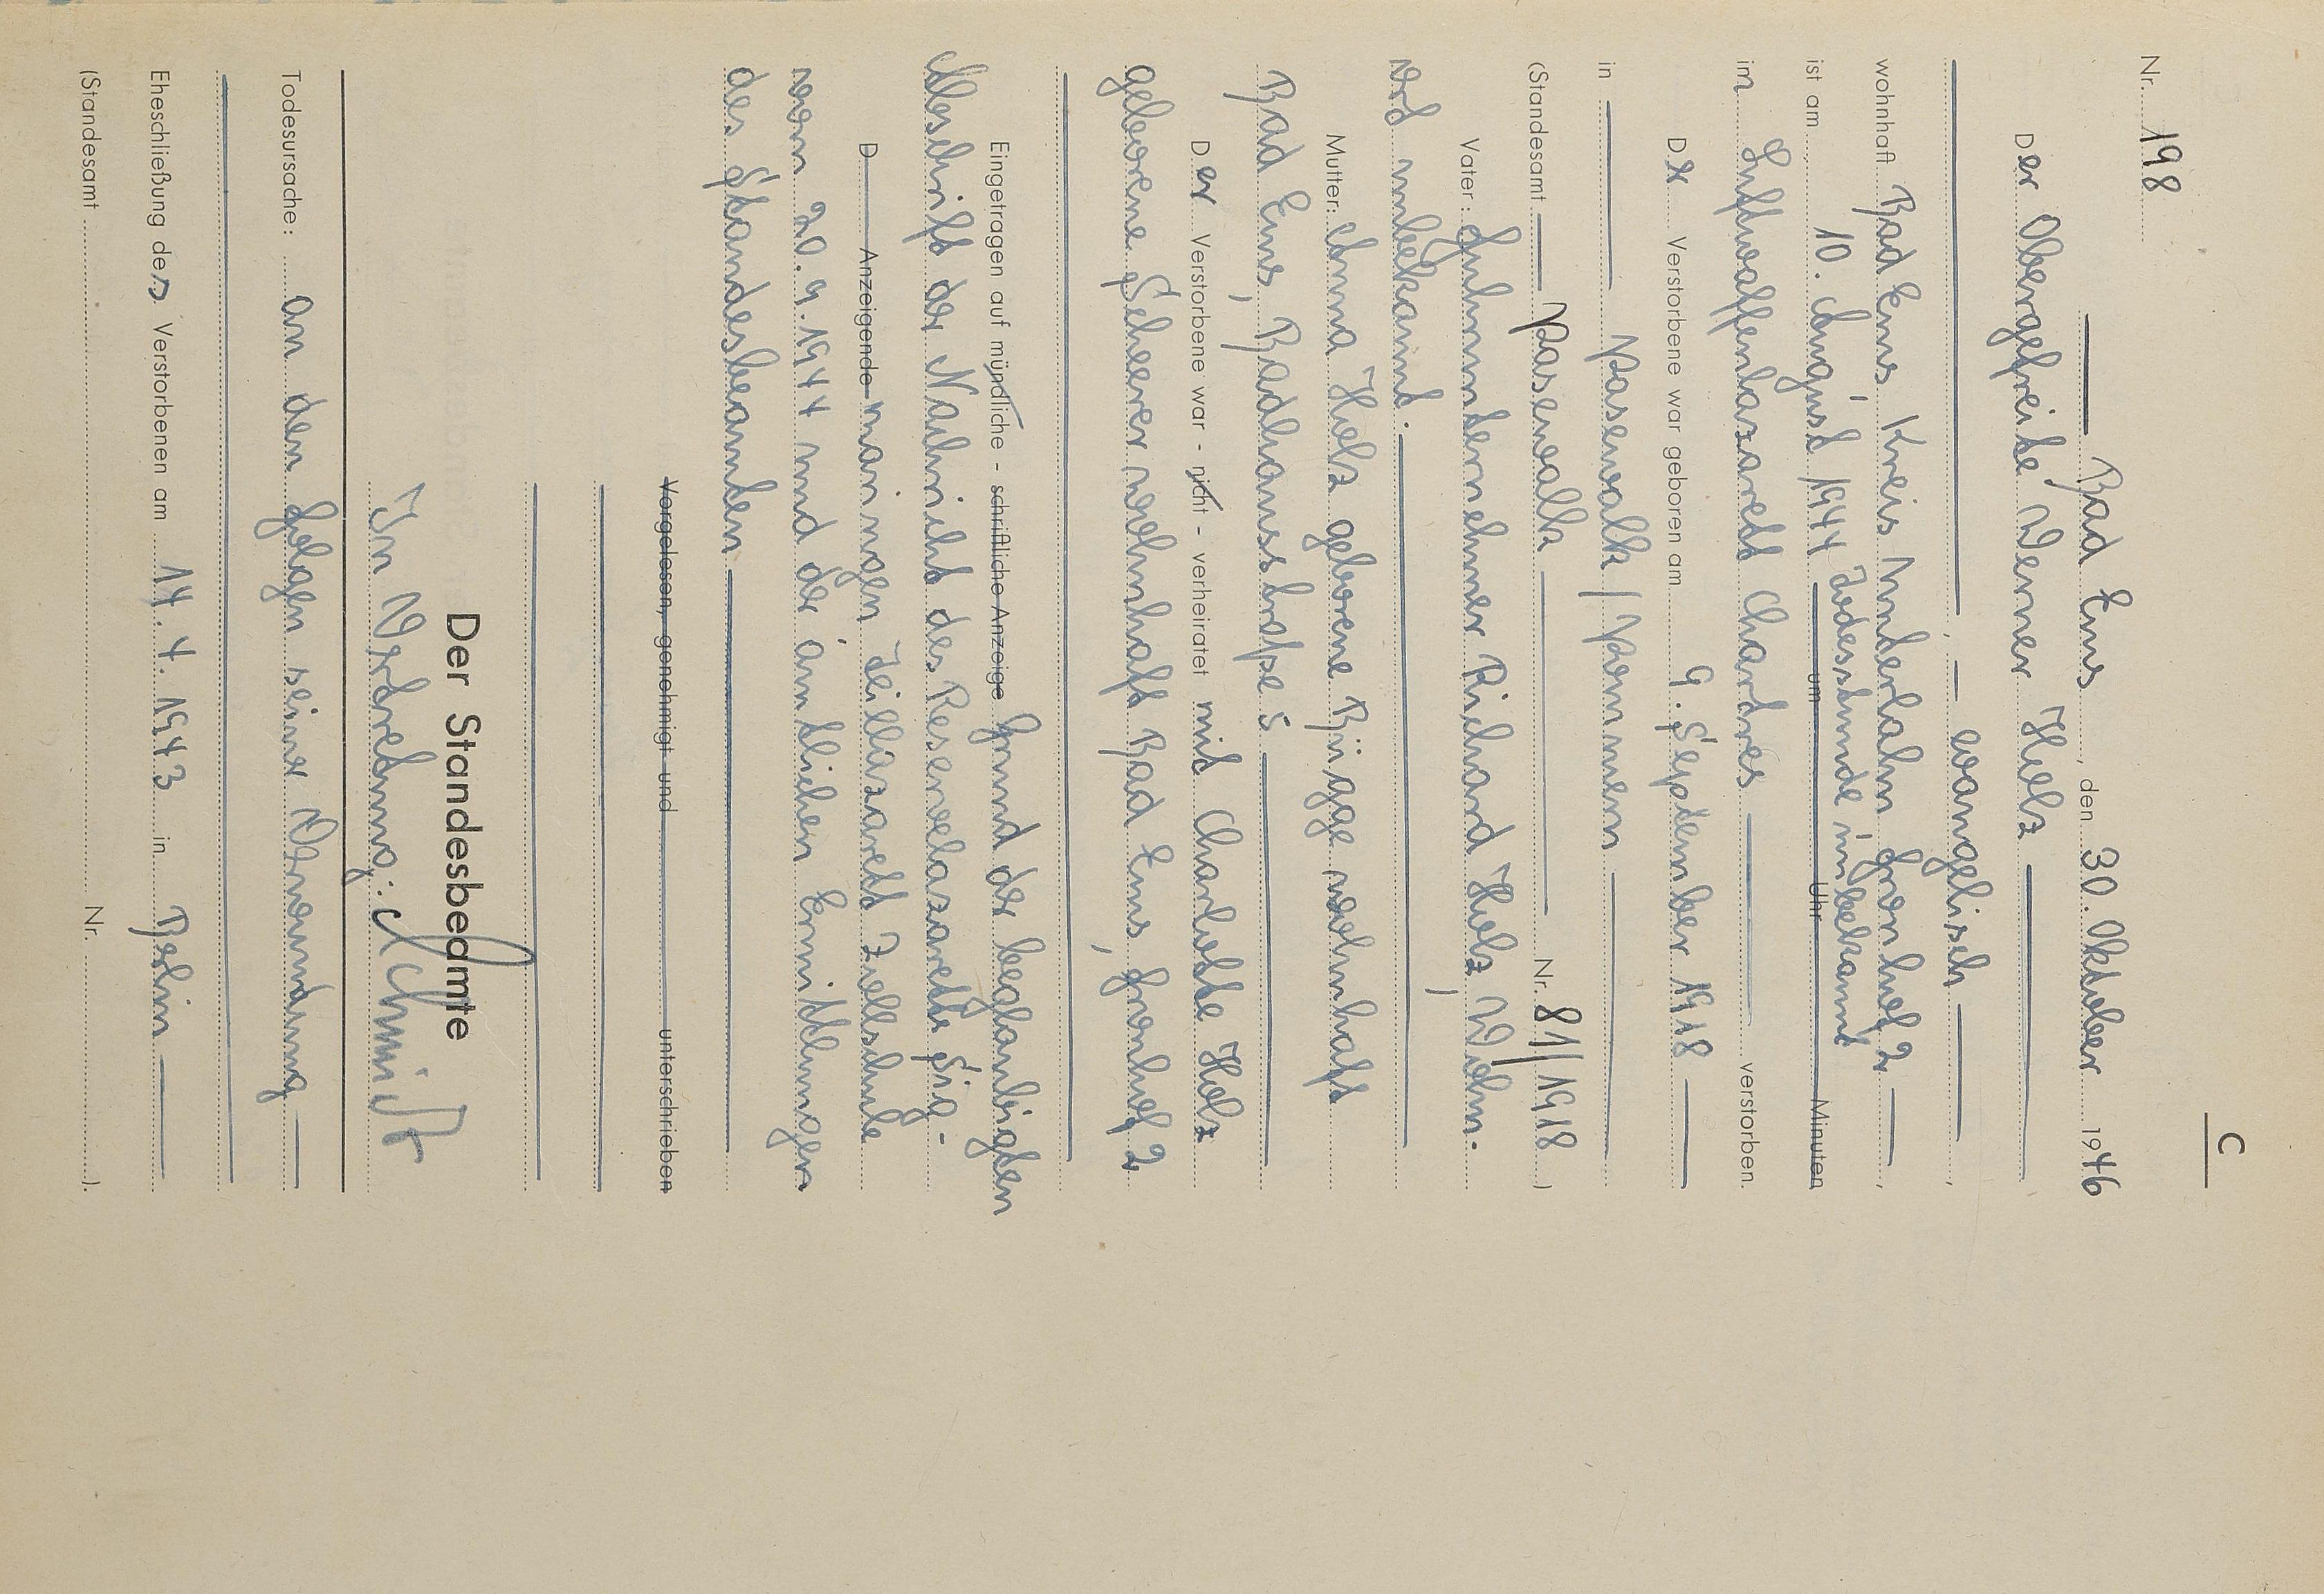 C
Nr. 198
Bad Ems, den 30. Oktober 1946
Der Obergefreite Werner Holz
, — evangelisch —,
wohnhaft Bad Ems, Kreis Unterlahn Gronhof 2,
ist am 10. August 1944 um Uhr Minuten
Todesstunde unbekannt
im Luftwaffenlazarett Chartres verstorben.
Der Verstorbene war geboren am 9. September 1918
in Pasewalk / Pommern
(Standesamt Pasewalk Nr. 81/1918)
Vater: Fuhrunternehmer Richard Holz, Wohn-
ort unbekannt.
Mutter: Anna Holz geborene Bügge wohnhaft
Bad Ems, Badhausstraße 5
Der Verstorbene war - nicht - verheiratet mit Charlotte Holz
geborene Scheerer wohnhaft Bad Ems, Gronhof 2
Eingetragen auf mündliche - schriftliche Anzeige Grund der beglaubigten
Abschrift der Nachricht des Reservelazaretts Sig-
D Anzeigende maringen Teillazarett Zollschule
vom 20.9.1944 und der amtlichen Ermittlungen
des Standesbeamten.
Vorgelesen, genehmigt und unterschrieben
Der Standesbeamte
In Vertretung: Schmidt
Todesursache: an den Folgen seiner Verwundung
Eheschließung des Verstorbenen am 14.4.1943 in Berlin
(Standesamt Nr. ).